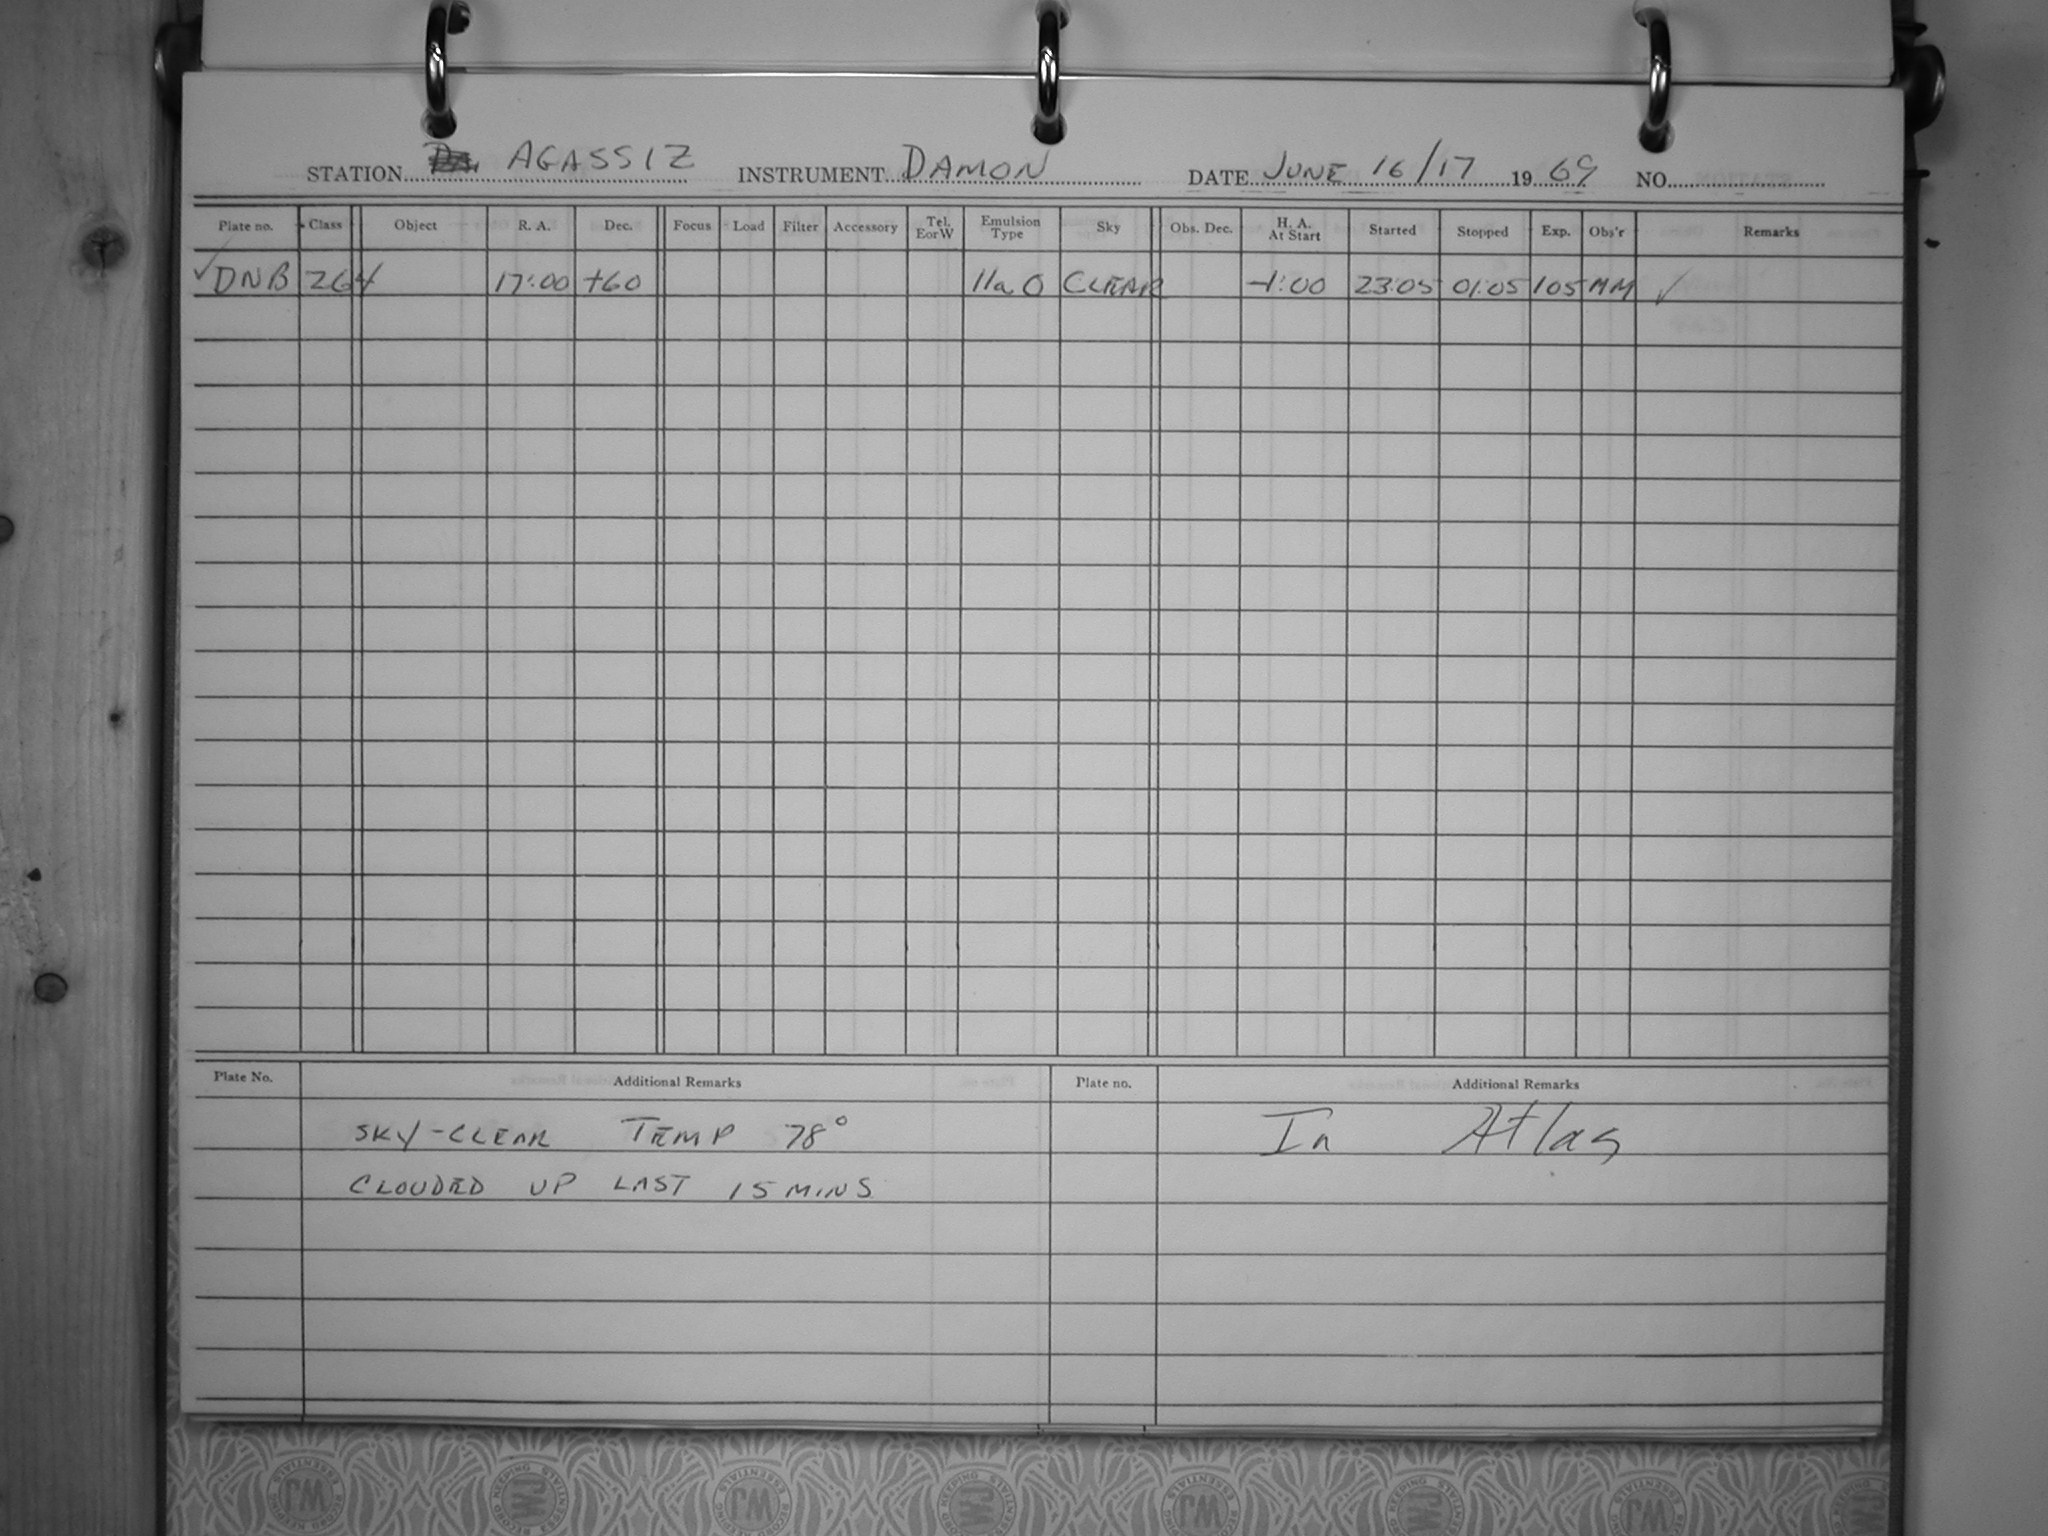 STATION AGASSIZ INSTRUMENT DAMON DATE JUNE 16/17 1969 NO.
Plate no. Class Object R. A. Dec. Focus Load Filter Accessory Tel. E or W Emulsion Type Sky Obs. Dec. H. A. At Start Started Stopped Exp. Obs'r Remarks
✓ DNB 264 17:00 +60 IIaO CLEAR -1:00 23:05 01:05 105 MM ✓
Plate No. Additional Remarks Plate no. Additional Remarks
SKY-CLEAR TEMP 78° In Atlas
CLOUDED UP LAST 15 MINS.
WJ ESSENTIALS RECORD KEEPING